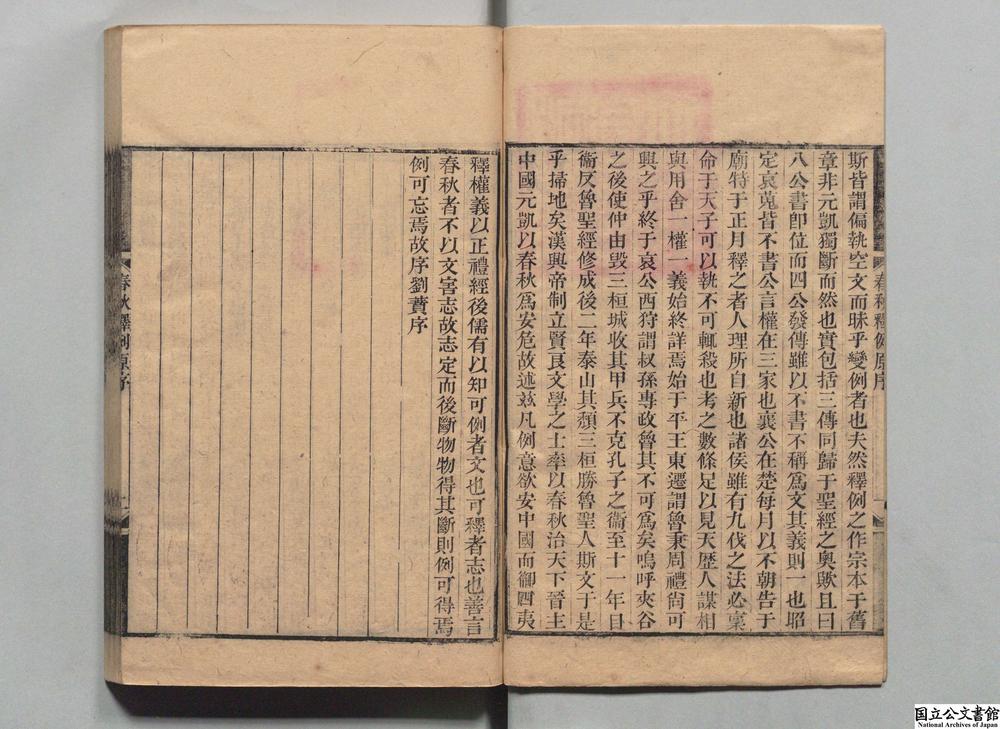 斯皆謂偏執空文而昧乎變例者也夫然釋例之作宗本于舊
章非元凱獨斷而然也實包括三傳同歸于聖經之奧歟且曰
八公書卽位而四公發傳雖以不書不稱爲文其義則一也昭
定哀蒐皆不書公言權在三家也襄公在楚每月以不朝告于
廟特于正月釋之者人理所自新也諸侯雖有九伐之法必稟
命于天子可以執不可輒殺也考之數條足以見天歷人謀相
與用舍一權一義始終詳焉始于平王東遷謂魯秉周禮尙可
興之乎終于哀公西狩謂叔孫專政魯其不可爲矣嗚呼夾谷
之後使仲由毀三桓城收其甲兵不克孔子之衞至十一年自
衞反魯聖經修成後二年泰山其頹三桓勝魯聖人斯文于是
乎掃地矣漢興帝制立賢良文學之士率以春秋治天下晉主
中國元凱以春秋爲安危故述玆凡例意欲安中國而御四夷
春秋釋例原序
釋權義以正禮經後儒有以知可例者文也可釋者志也善言
春秋者不以文害志故志定而後斷物物得其斷則例可得焉
例可忘焉故序劉蕡序
春秋釋例原序
二
国立公文書館
National Archives of Japan